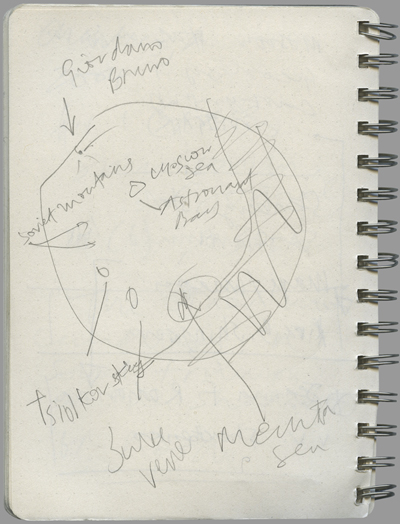 Giordano
Bruno
Moscow
Sea
Soviet mountains
Astronaut
Bay
Tsiolkovskiy
Jules
Verne
Mechta
Sea